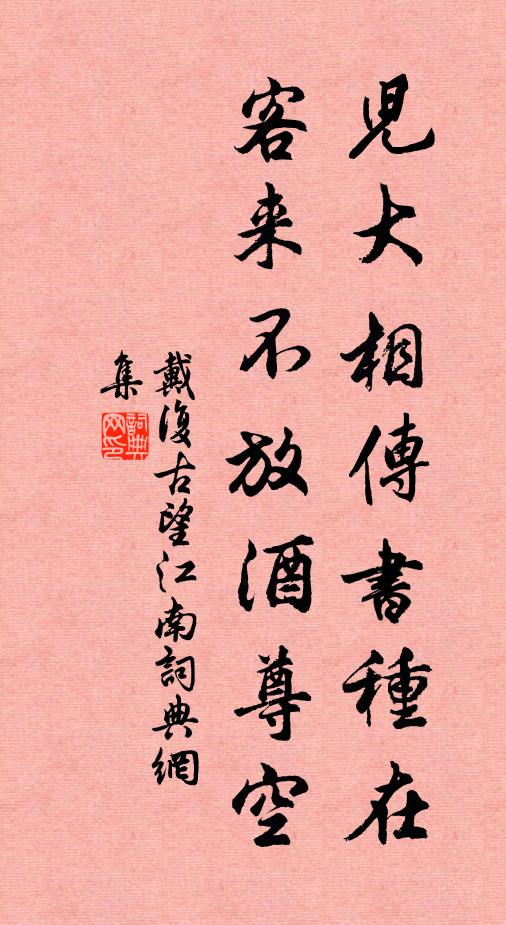 児大相傳書種在
客来不放酒尊空
戴復古望江南詞典網
集
詞典
网印